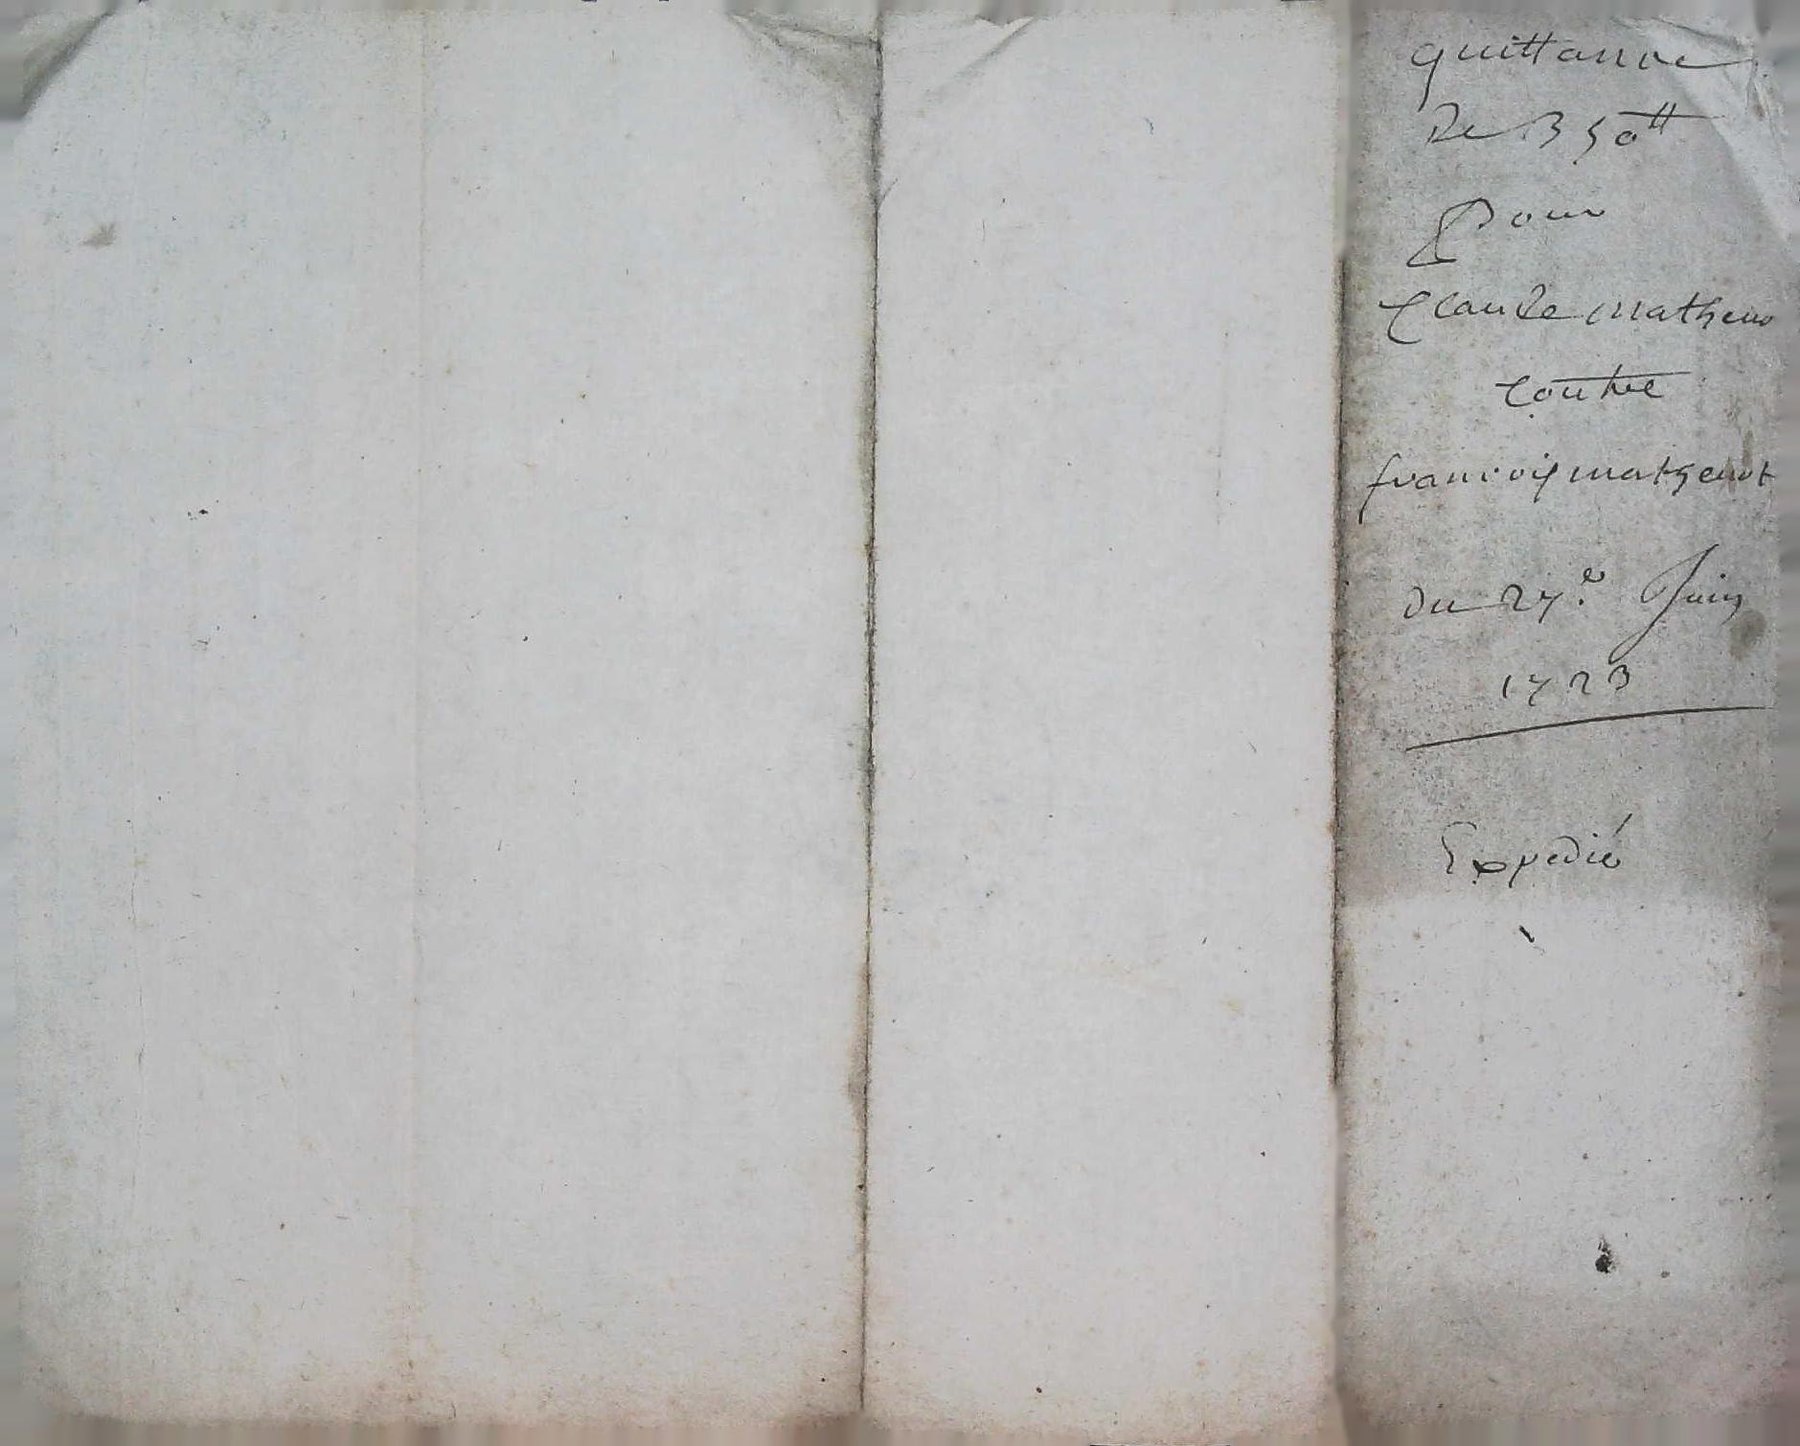 quittance
de 350ᵗᵗ
pour
Claude mathenot
contre
francois mathenot
du 27.ᵉ Juin
1723
Expedié